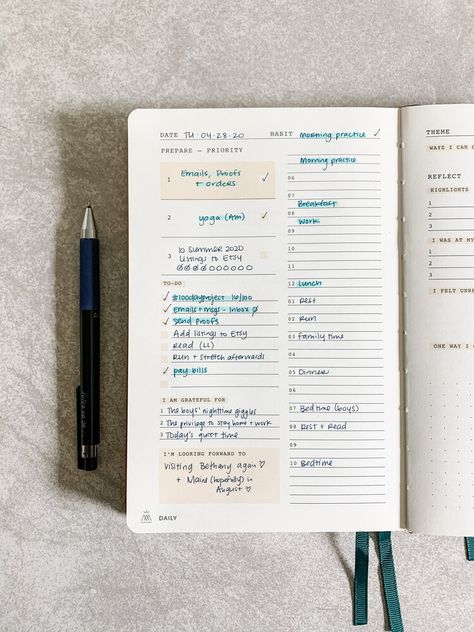 DATE TU 04.28.20 HABIT morning practice ✓
PREPARE — PRIORITY
1 Emails, Proofs + orders ✓
2 yoga (AM) ✓
3 10 Summer 2020
Listings to Etsy
TO-DO
✓ #100dayproject 16/100
✓ Emails + msgs - inbox 0
✓ Send proofs
Add listings to Etsy
Read (LL)
Run + stretch afterwards
✓ pay bills
I AM GRATEFUL FOR
1 The boys' nighttime giggles
2 The privilege to stay home + work
3 Today's quiet time
I'M LOOKING FORWARD TO
Visiting Bethany again ♡
+ Maine (hopefully) in
August ♡
DAILY
Morning practice
06
07
Breakfast
08
Work
09
10
11
12 Lunch
01 Rest
02 Run
03 Family time
04
05 Dinner
07 Bedtime (boys)
08 Rest + Read
09
10 Bedtime
THEME
WAYS I CAN
REFLECT
HIGHLIGHTS
1
2
3
I WAS AT MY
1
2
3
I FELT
ONE WAY I